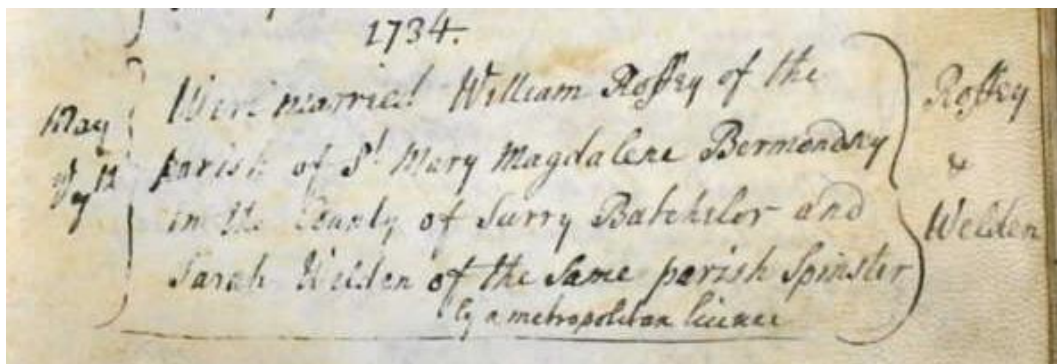 1734.
May
ye 9th
Were married William Roffey of the
parish of St Mary Magdalene Bermondsey
in the County of Surry Batchelor and
Sarah Welden of the Same parish Spinster
by a metropolitan licence
Roffey
&
Welden